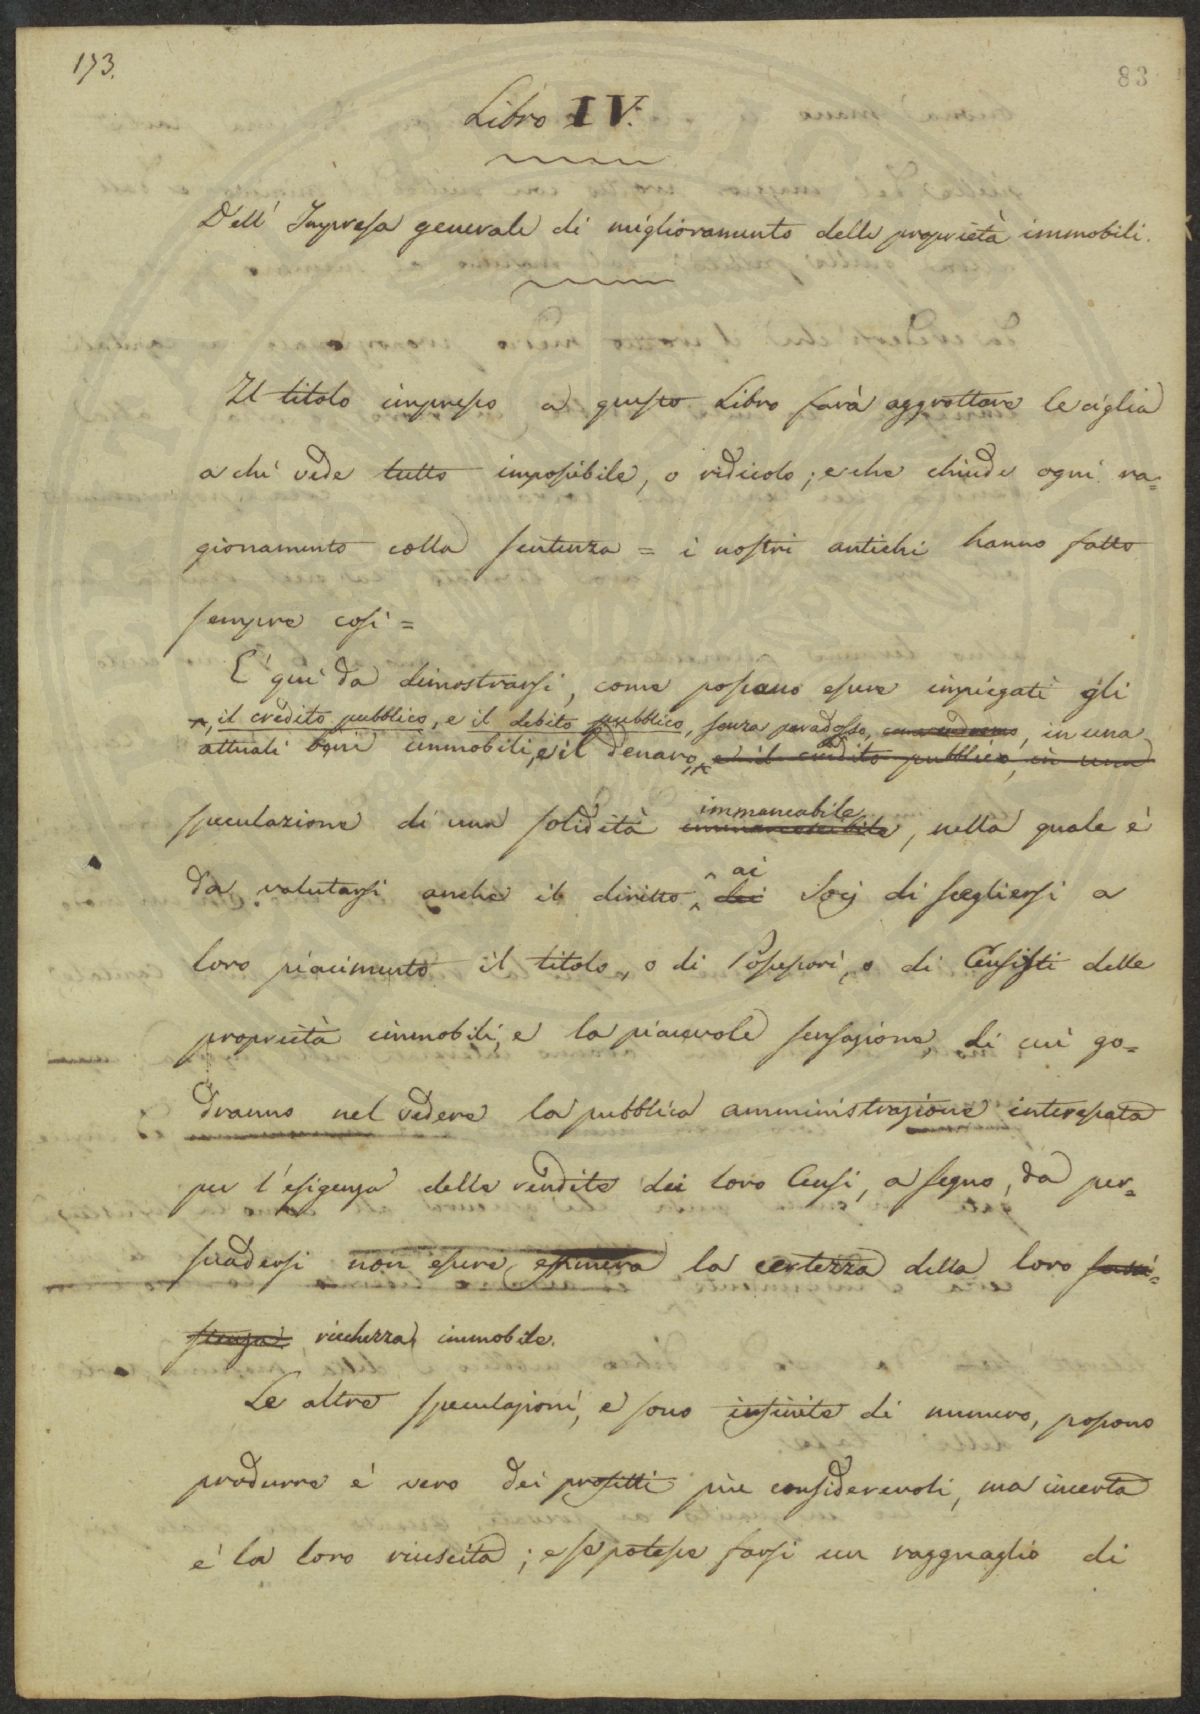 173.
83
Libro IV.
Dell' Impresa generale di miglioramento delle proprietà immobili.
Il titolo impresso a questo Libro farà aggrottare le ciglia
a chi vede tutto impossibile, o ridicolo; e che chiude ogni ra=
gionamento colla sentenza = i nostri antichi hanno fatto
sempre così =
E' quì da dimostrarsi, come possano essere impiegati gli
, il credito pubblico, e il debito pubblico, senza paradosso, in una
attuali beni immobili, e il denaro, e il credito pubblico, in una
immancabile
speculazione di una solidità , nella quale è
ai
da valutarsi anche il diritto dei Socj di scegliersi a
loro piacimento il titolo, o di Possessori, o di Censisti delle
proprietà immobili, e la piacevole sensazione, di cui go=
dranno nel vedere la pubblica amministrazione interessata
per l'esigenza delle rendite dei loro Censi, a segno, da per=
suadersi non essere effimera la certezza della loro sussi=
stenza ricchezza immobile.
Le altre speculazioni, e sono infinite di numero, possono
produrre è vero dei profitti più considerevoli, ma incerta
è la loro riuscita; e se potesse farsi un ragguaglio di